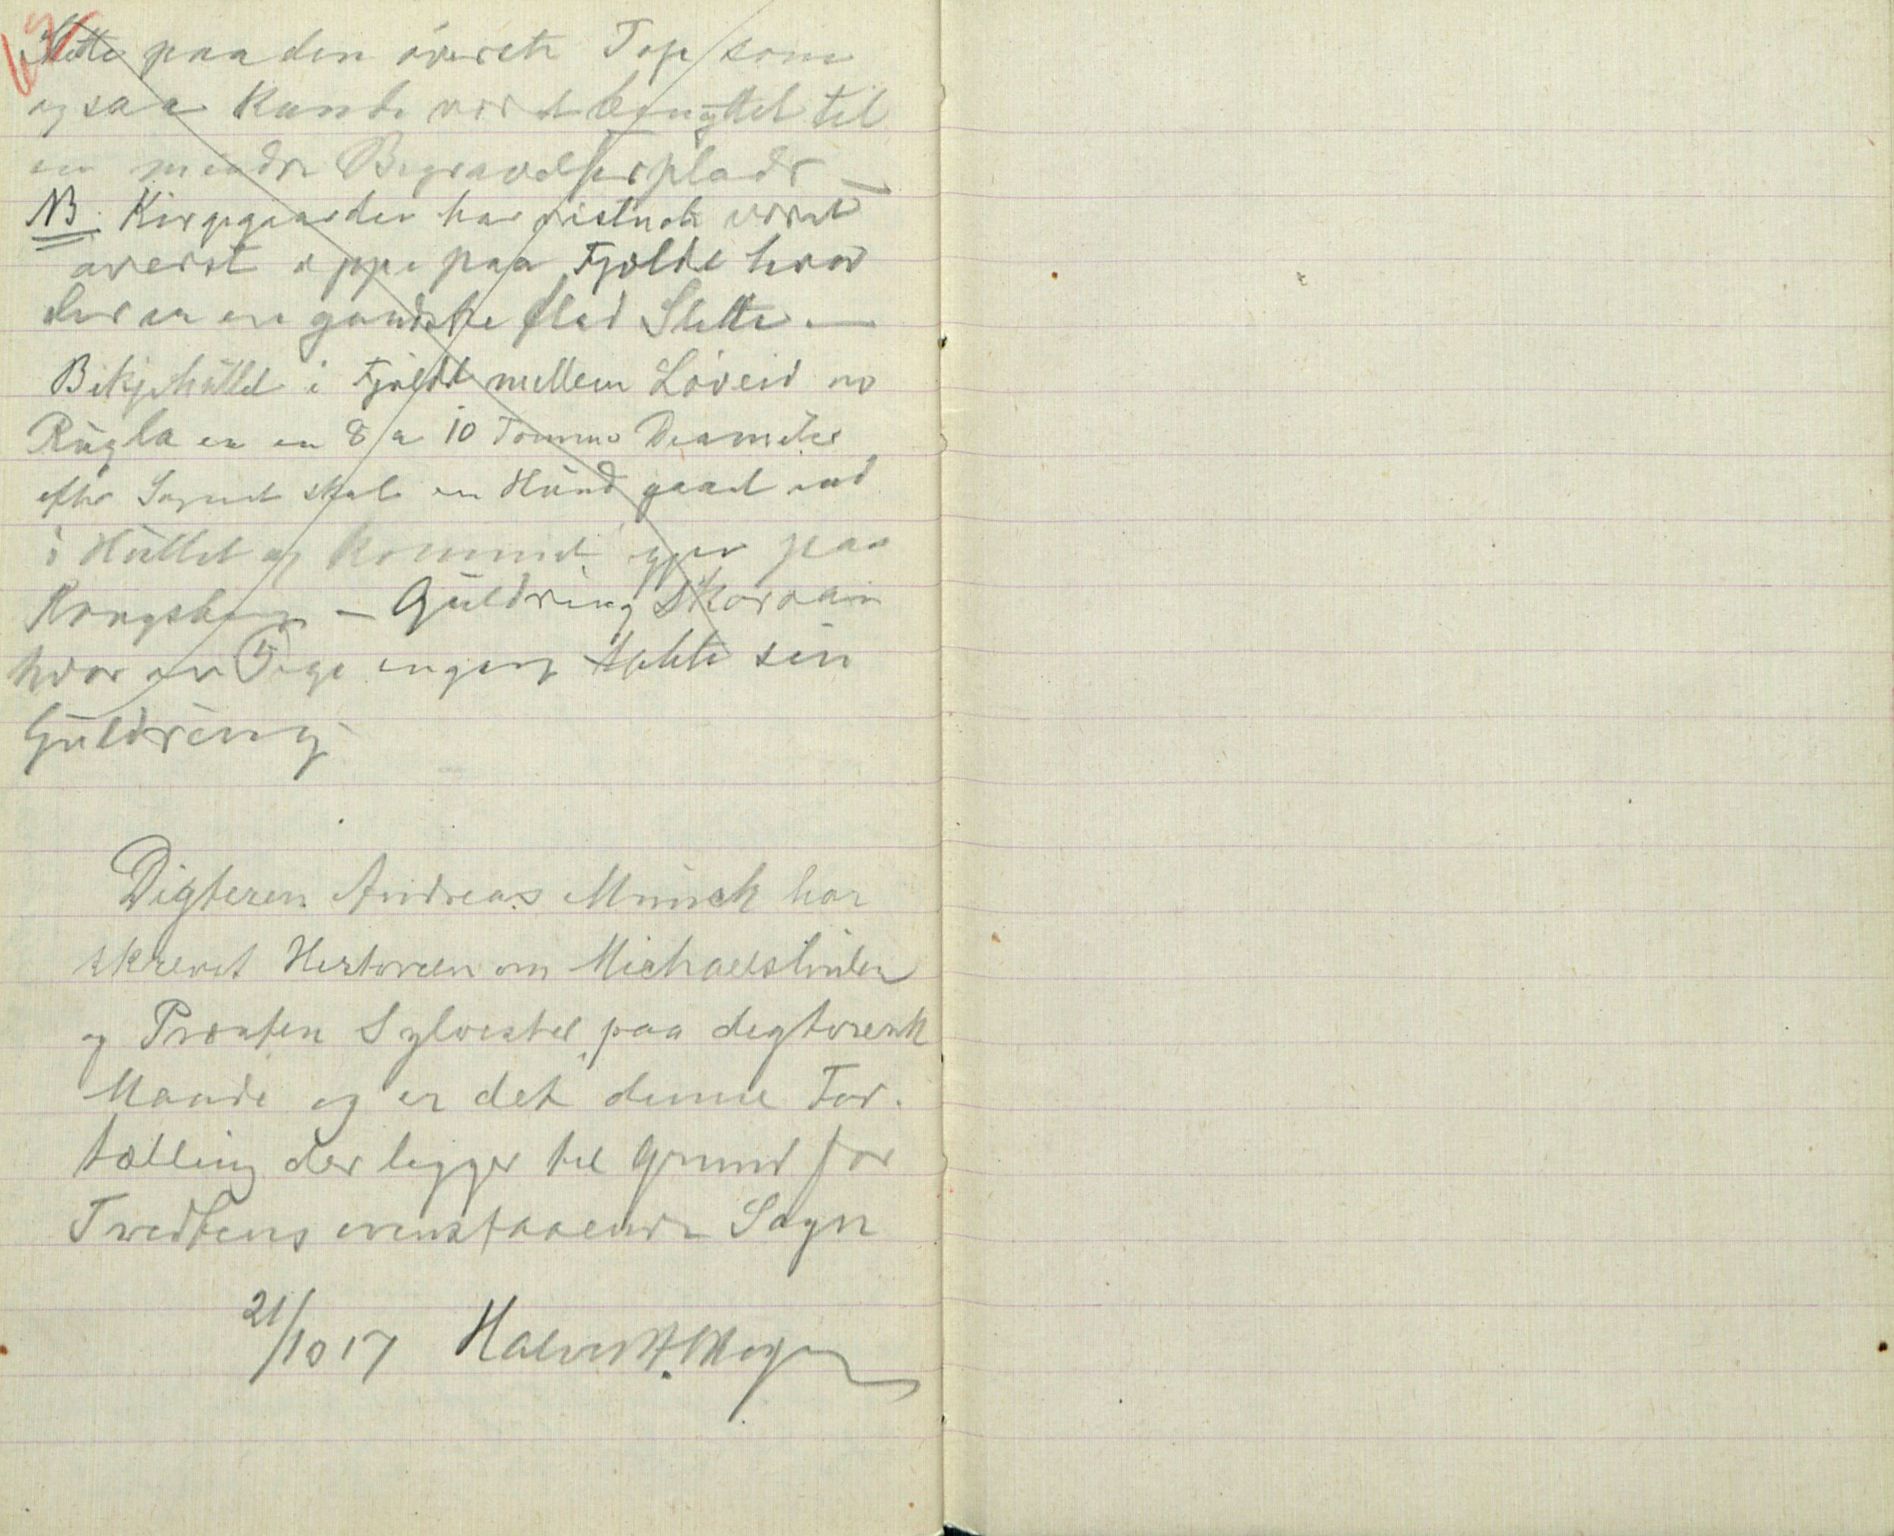 Slette paa den øverste Top som
ogsaa kunde været benyttet til
en mindre Begravelsesplads —
NB. Kirkegaarden har vistnok været
øverst oppe paa Fjelde hvor
der er en gandske flad Slette. —
Bikjehullet i Fjeldet mellem Löveid og
Rugla er en 8 a 10 Tommer Diameter
efter Sagnet skal en Hund gaaet ind
i Hullet og kommet igjen paa
Kongsberg — Guldring Skoraain
hvor en Pige engang tabte sin
Guldring.
Digteren Andreas Munch har
skrevet Historien om Michaelstinden
og Præsten Sylvester paa digterisk
Maade og er det denne For-
tælling der ligger til Grund for
Tvedtens ovenstaaende Sagn
21/10 17 Halvor N.